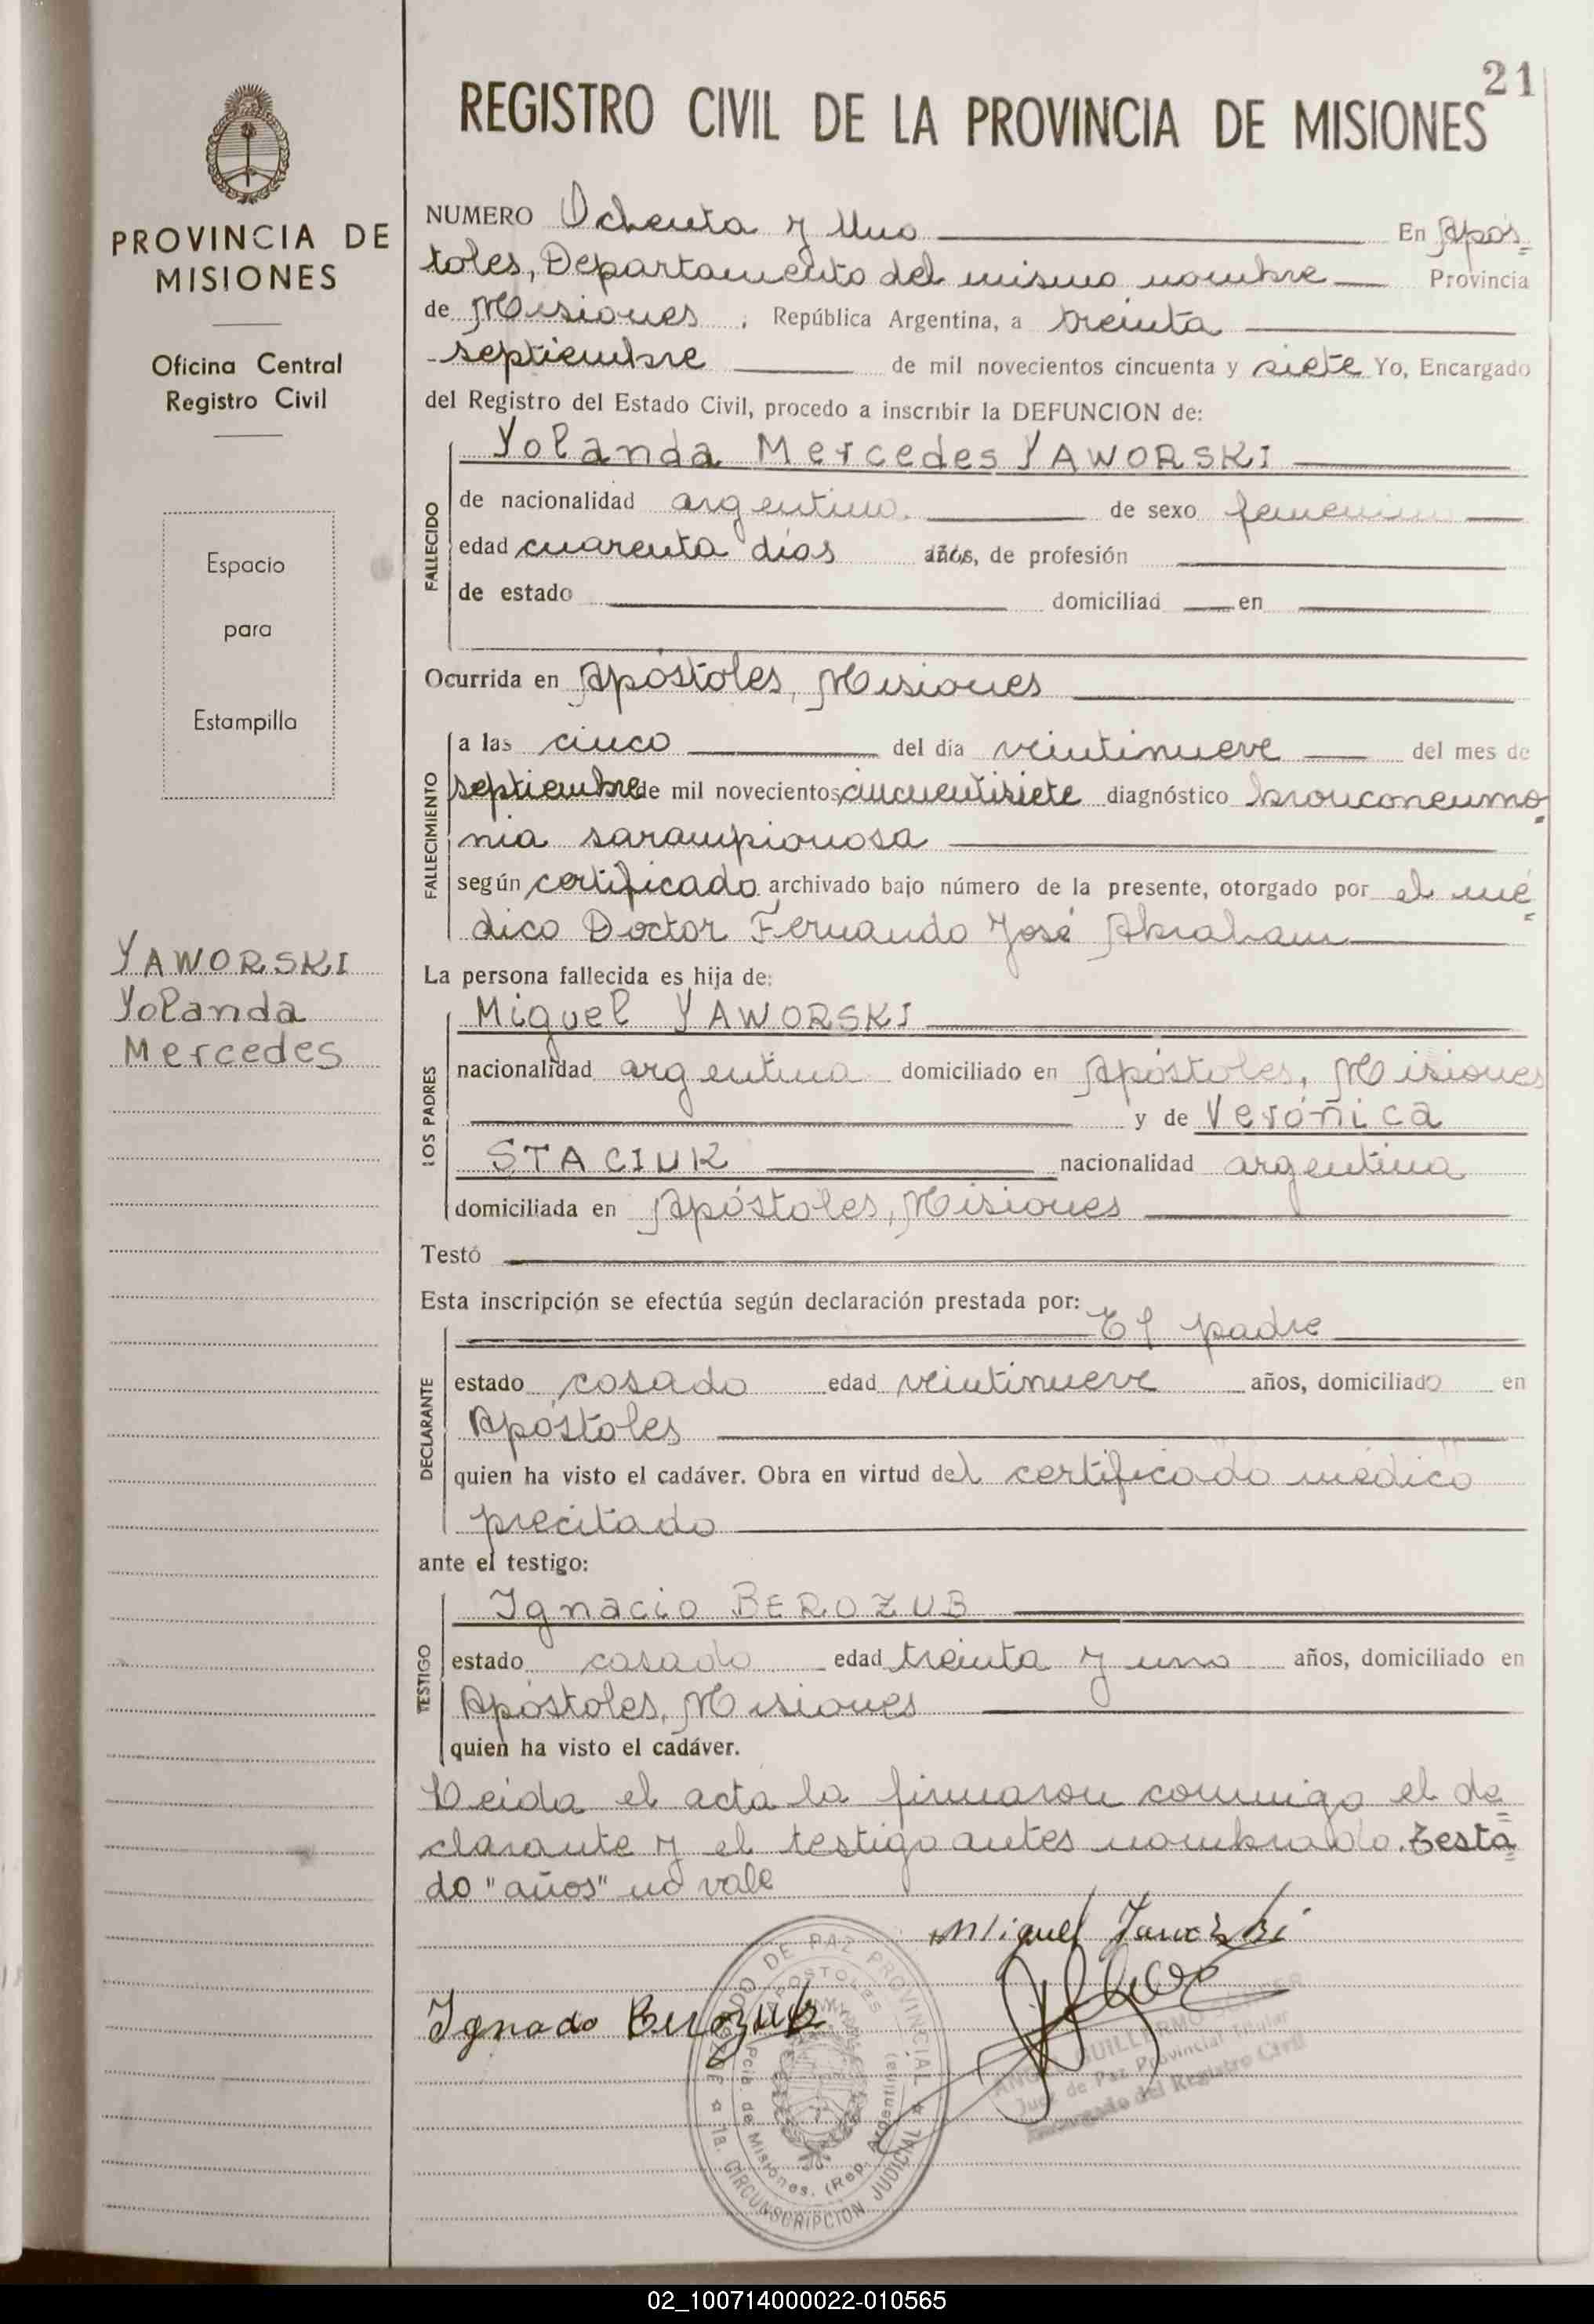 21
REGISTRO CIVIL DE LA PROVINCIA DE MISIONES
PROVINCIA DE
MISIONES
Oficina Central
Registro Civil
Espacio
para
Estampilla
YAWORSKI
Yolanda
Mercedes
NUMERO Ochenta y Uno En Após=
toles, Departamento del mismo nombre Provincia
de Misiones, República Argentina, a treinta
septiembre de mil novecientos cincuenta y siete Yo, Encargado
del Registro del Estado Civil, procedo a inscribir la DEFUNCION de:
Yolanda Mercedes YAWORSKI
FALLECIDO
de nacionalidad argentina de sexo femenino
edad cuarenta días años, de profesión
de estado domiciliad en
Ocurrida en Apóstoles, Misiones
FALLECIMIENTO
a las cinco del día veintinueve del mes de
septiembre de mil novecientos cincuentisiete diagnóstico bronconeumo=
nia sarampionosa
según certificado archivado bajo número de la presente, otorgado por el mé=
dico Doctor Fernando José Abraham
La persona fallecida es hija de:
LOS PADRES
Miguel YAWORSKI
nacionalidad argentina domiciliado en Apóstoles, Misiones
y de Verónica
STACIUK nacionalidad argentina
domiciliada en Apóstoles, Misiones
Testó
Esta inscripción se efectúa según declaración prestada por:
El padre
DECLARANTE
estado casado edad veintinueve años, domiciliado en
Apóstoles
quien ha visto el cadáver. Obra en virtud del certificado médico
precitado
ante el testigo:
TESTIGO
Ignacio BEROZUB
estado casado edad treinta y uno años, domiciliado en
Apóstoles, Misiones
quien ha visto el cadáver.
Leida el acta la firmaron conmigo el de=
clarante y el testigo antes nombrado. Testa=
do "años" no vale
Miguel
Ignacio Berozub
JUZGADO DE PAZ PROVINCIAL
APOSTOLES
Pcia. de Misiones. (Rep. Argentina)
1a. CIRCUNSCRIPCION JUDICIAL
GUILLERMO
Juez de Paz Provincial Titular
Encargado del Registro Civil
02_100714000022-010565